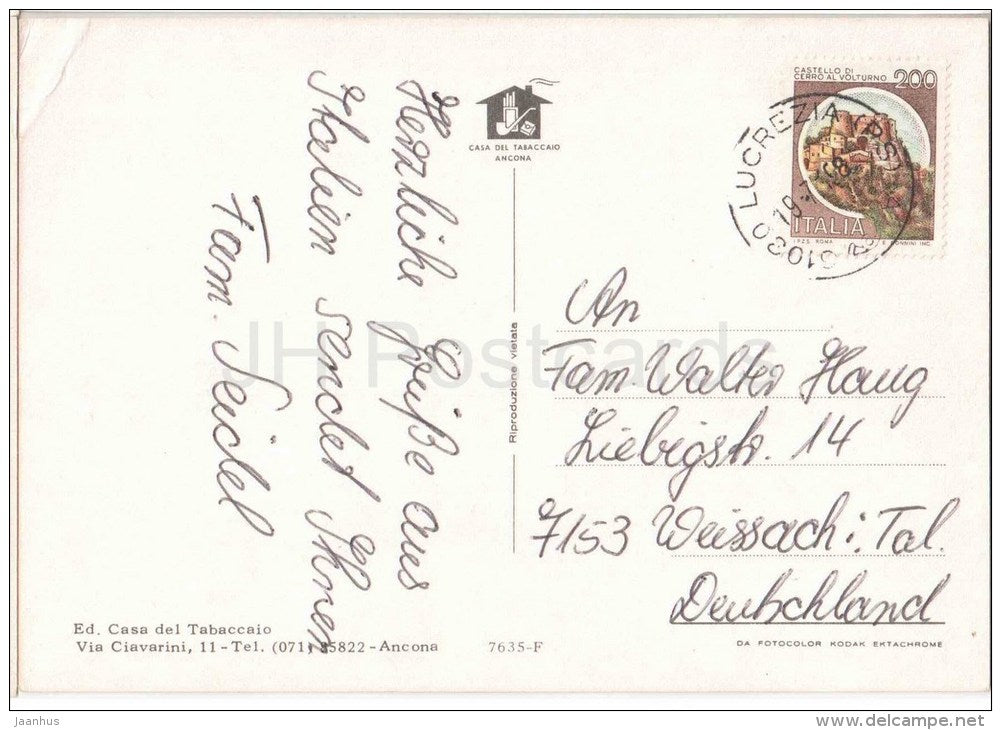 Herzliche Grüße aus
Italien sendet Ihnen
Fam. Seidel
CASA DEL TABACCAIO
ANCONA
CASTELLO DI
CERRO AL VOLTURNO
200
ITALIA
I.P.Z.S. ROMA
61030 LUCREZIA (PS)
Riproduzione vietata
An
Fam. Walter Haug
Liebigstr. 14
7153 Weissach i. Tal.
Deutschland
Ed. Casa del Tabaccaio
Via Ciavarini, 11 - Tel. (071) 85822 - Ancona
7635-F
DA FOTOCOLOR KODAK EKTACHROME
JH Postcards
jaanhus
www.delcampe.net